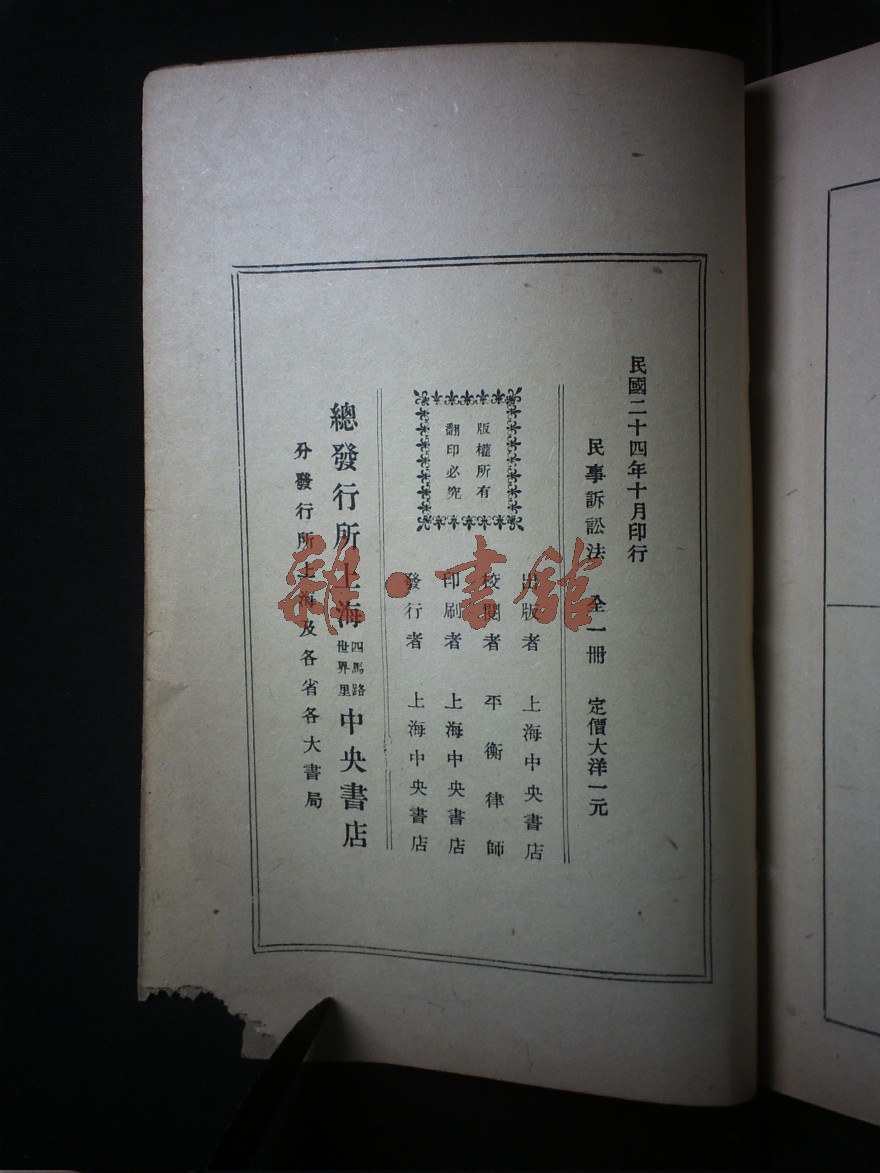 民國二十四年十月印行
民事訴訟法 全一冊 定價大洋一元
版權所有
翻印必究
出版者 上海中央書店
校閱者 平衡律師
印刷者 上海中央書店
發行者 上海中央書店
總發行所上海四馬路世界里中央書店
分發行所上海及各省各大書局
雜·書館